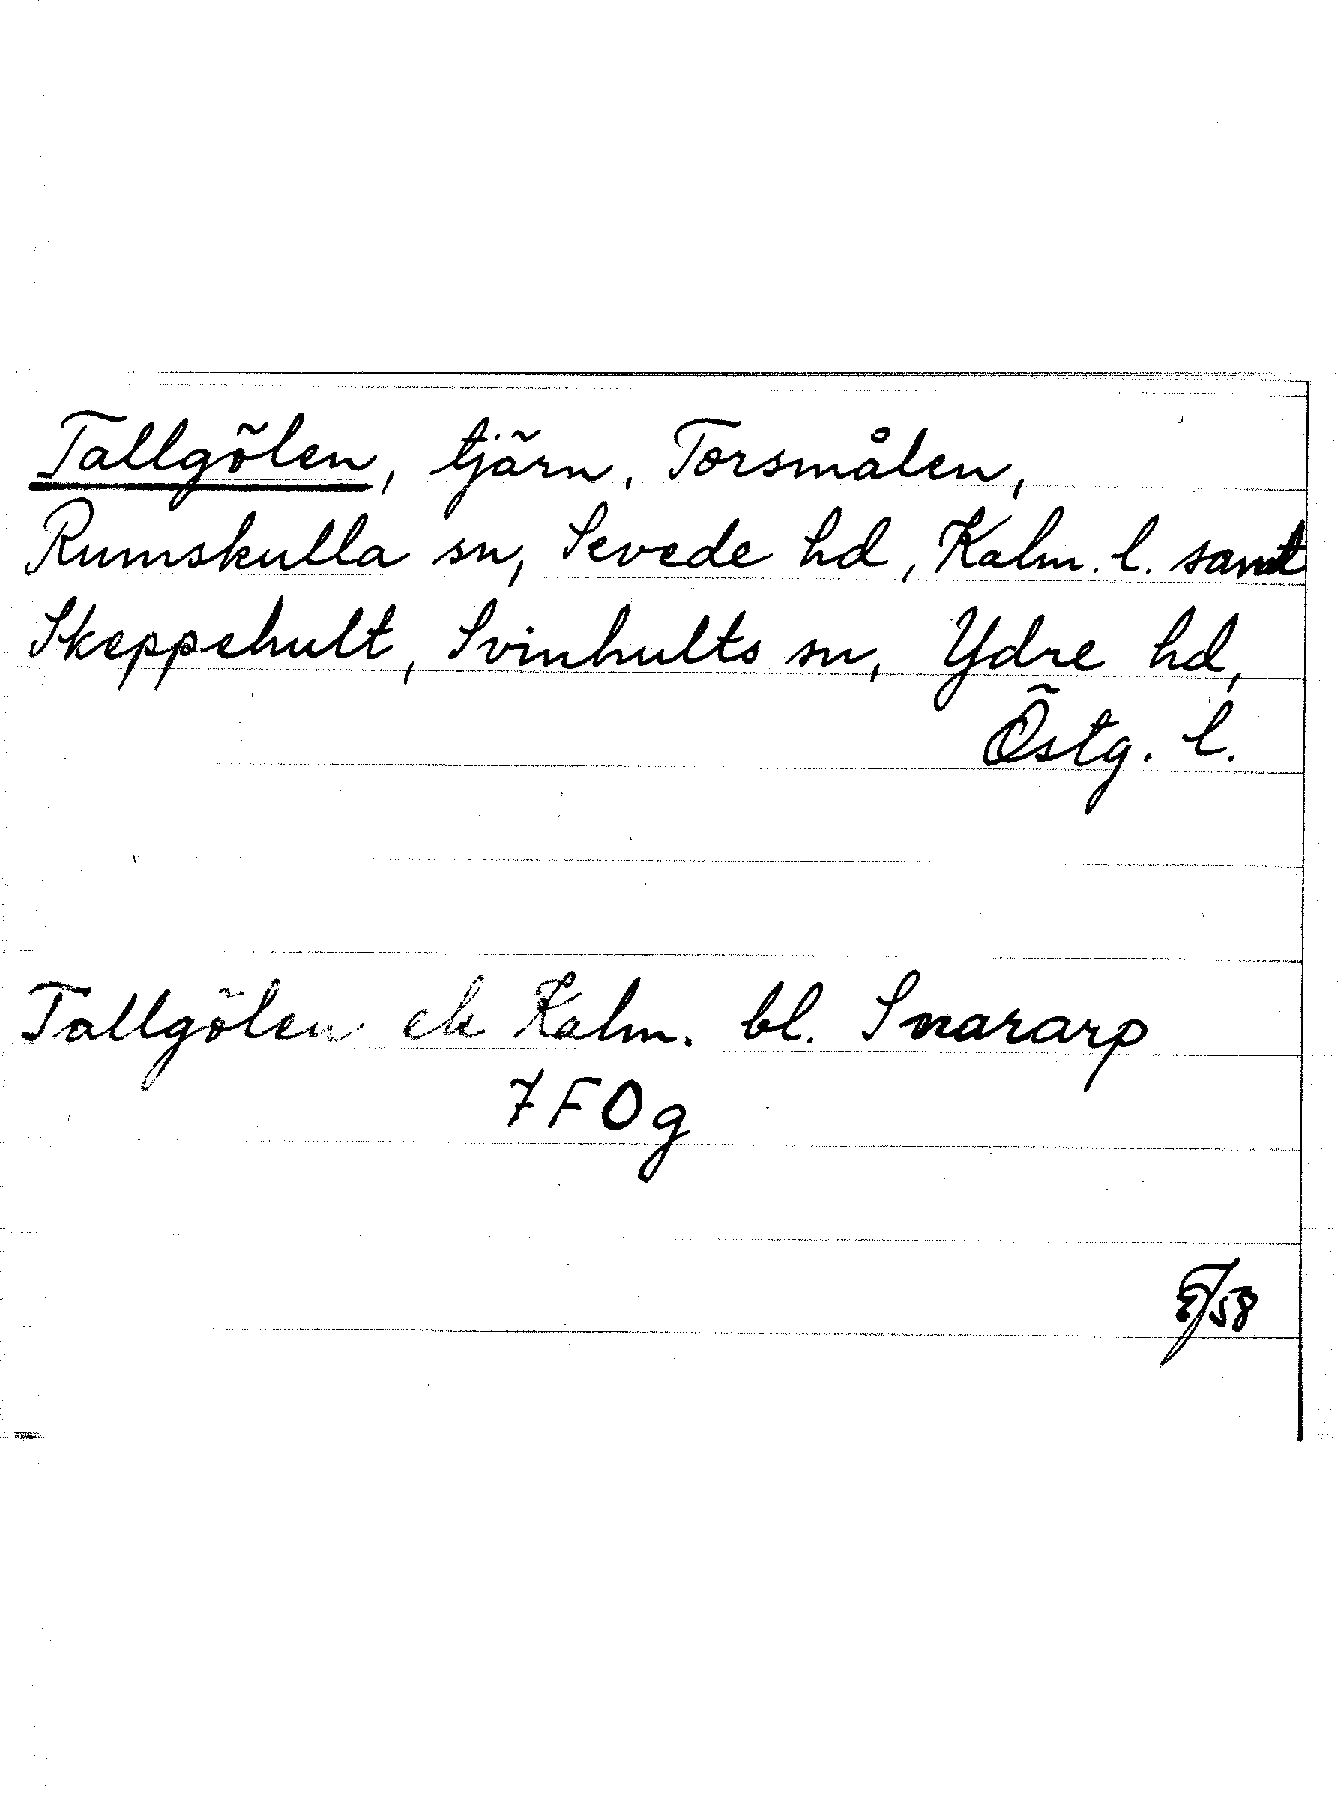 Tallgölen, tjärn, Torsmålen,
Rumskulla sn, Sevede hd, Kalm. l. samt
Skeppehult, Svinhults sn, Ydre hd,
Östg. l.
Tallgölen ek Kalm. bl. Snararp
7 F O g
/58